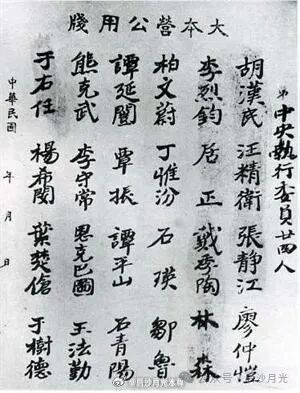 大本營公用牋
第
中央執行委員廿四人
胡漢民 汪精衛 張靜江 廖仲愷
李烈鈞 居正 戴季陶 林森
柏文蔚 丁惟汾 石瑛 鄒魯
譚延闓 覃振 譚平山 石青陽
熊克武 李守常 恩克巴圖 王法勤
于右任 楊希閔 葉楚傖 于樹德
中華民國 年 月 日
@后沙月光本尊
公众号 · 后沙月光